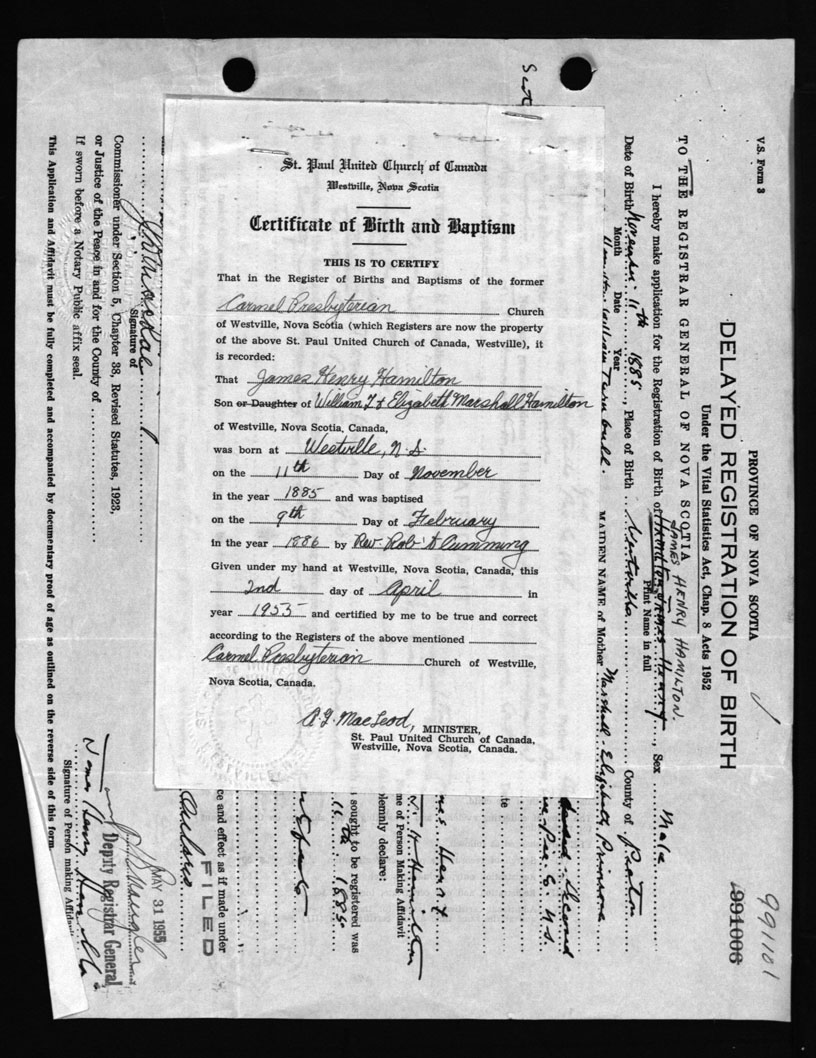 St. Paul United Church of Canada
Westville, Nova Scotia
Certificate of Birth and Baptism
THIS IS TO CERTIFY
That in the Register of Births and Baptisms of the former
Carmel Presbyterian Church
of Westville, Nova Scotia (which Registers are now the property
of the above St. Paul United Church of Canada, Westville), it
is recorded:
That James Henry Hamilton
Son or Daughter of William T & Elizabeth Marshall Hamilton
of Westville, Nova Scotia, Canada,
was born at Westville, N.S.
on the 11th Day of November
in the year 1885 and was baptised
on the 9th Day of February
in the year 1886 by Rev. Rob't Cumming
Given under my hand at Westville, Nova Scotia, Canada, this
2nd day of April in
year 1955 and certified by me to be true and correct
according to the Registers of the above mentioned
Carmel Presbyterian Church of Westville,
Nova Scotia, Canada.
MacLeod, MINISTER,
St. Paul United Church of Canada,
Westville, Nova Scotia, Canada.
V.S. Form 3
PROVINCE OF NOVA SCOTIA
991101
DELAYED REGISTRATION OF BIRTH
991006
Under the Vital Statistics Act, Chap. 8 Acts 1952
TO THE REGISTRAR GENERAL OF NOVA SCOTIA
JAMES HENRY HAMILTON
I hereby make application for the Registration of Birth of Hamilton James Henry, Sex Male
Print Name in full
Date of Birth November 11th 1885, Place of Birth Westville County of Pictou
Month Date Year
Hamilton William Turnbull. MAIDEN NAME of Mother Marshall Elizabeth Primrose
Scot
me of Person Making Affidavit
lemnly declare:
sought to be registered was
11th 1885
ce and effect as if made under
FILED
Signature of
Commissioner under Section 5, Chapter 38, Revised Statutes, 1923,
or Justice of the Peace in and for the County of
If sworn before a Notary Public affix seal.
MAY 31 1955
Deputy Registrar General
James Henry Hamilton
Signature of Person making Affidavit
This Application and Affidavit must be fully completed and accompanied by documentary proof of age as outlined on the reverse side of this form